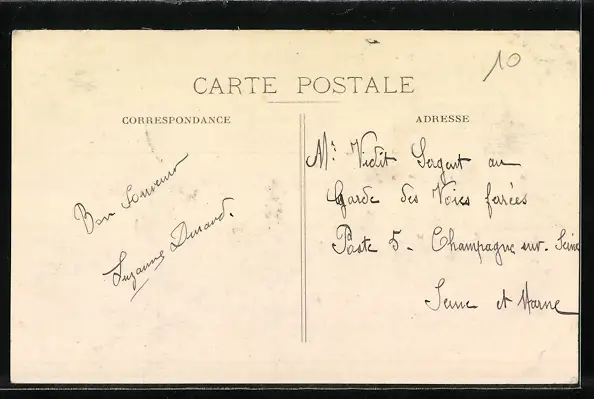 10
CARTE POSTALE
CORRESPONDANCE
ADRESSE
Bon Souvenir
Suzanne Durand.
Mr Violit Sergent au
Garde des Voies ferrées
Poste 5 - Champagne sur. Seine
Seine et Marne